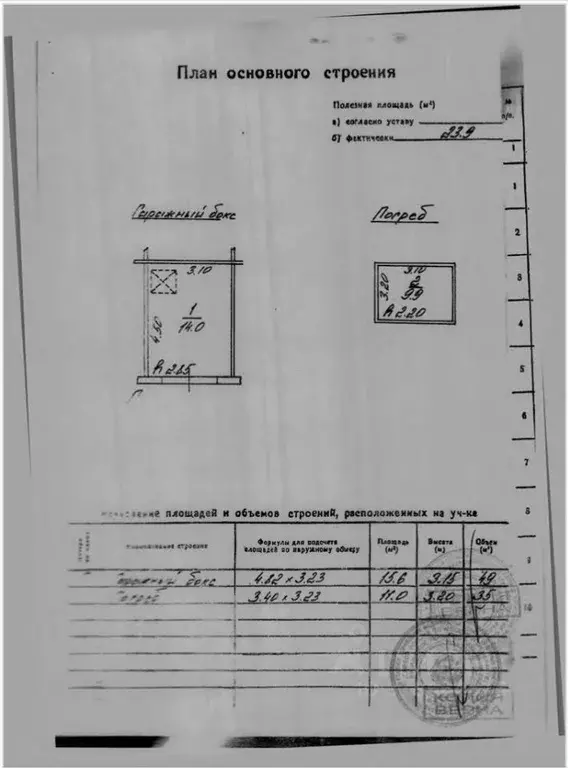 План основного строения
Полезная площадь (м²)
а) согласно уставу
б) фактически 23.9
№
п/п.
1
1
2
3
4
5
6
7
8
9
10
Гаражный бокс
3.10
4.50
1
14.0
h 2.25
Погреб
3.10
3.20
2
9.9
h 2.20
площадей и объемов строений, расположенных на уч-ке
строения
Формулы для подсчета площадей по наружному обмеру
Площадь (м²)
Высота (м)
Объем (м³)
Гаражный бокс 4.82 х 3.23 15.6 3.15 49
Погреб 3.40 х 3.23 11.0 3.20 35
КОПИЯ
ВЕРНА